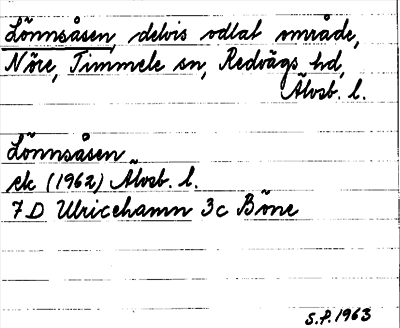 Lönnsåsen, delvis odlat område,
Nöre, Timmele sn, Redvägs hd,
Älvsb. l.
Lönnsåsen
ek (1962) Älvsb. l.
7D Ulricehamn 3c Böne
S.P. 1963